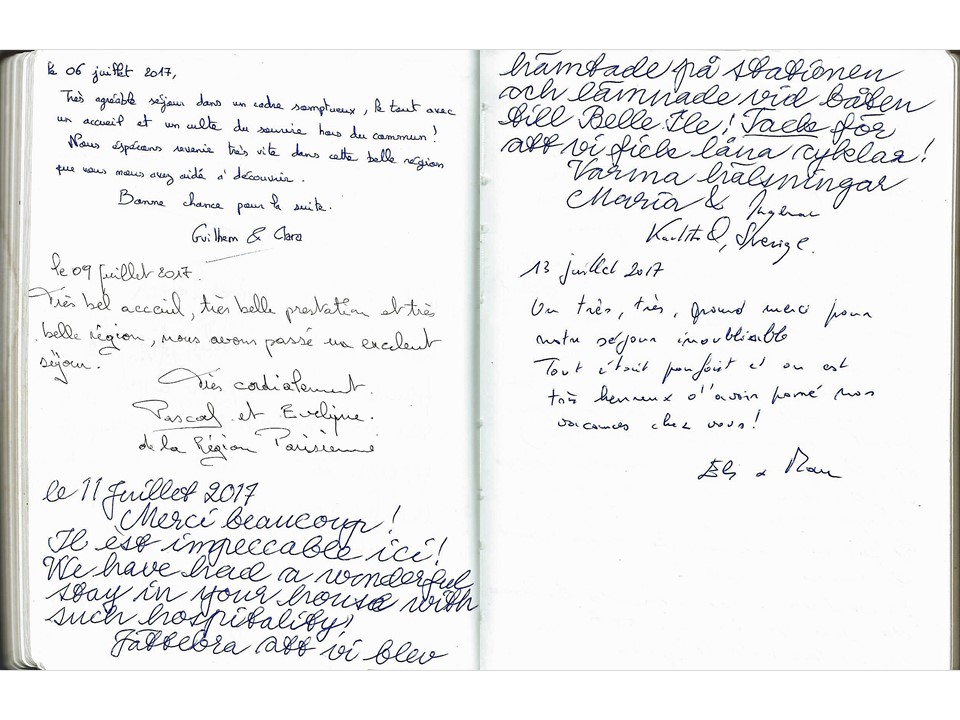 le 06 juillet 2017,
Très agréable séjour dans un cadre somptueux, le tout avec
un accueil et un culte du sourire hors du commun !
Nous espérons revenir très vite dans cette belle région
que vous nous avez aidé à découvrir.
Bonne chance pour la suite.
Guilhem & Clara
le 09 juillet 2017.
Très bel accueil, très belle prestation et très
belle région, nous avons passé un excelent
séjour.
Très cordialement.
Pascal et Evelyne.
de la Région Parisienne
le 11 juillet 2017
Merci beaucoup!
Il èst impeccable ici!
We have had a wonderful
stay in your house with
such hospitality!
Jättebra att vi blev
hämtade på stationen
och lämnade vid båten
till Belle Ile! Tack för
att vi fick låna cyklar!
Varma hälsningar
Maria & Ingemar
Sverige.
13 juillet 2017
Un très, très, grand merci pour
notre séjour inoubliable
Tout était parfait et on est
très heureux d'avoir passé nos
vacances chez vous!
&